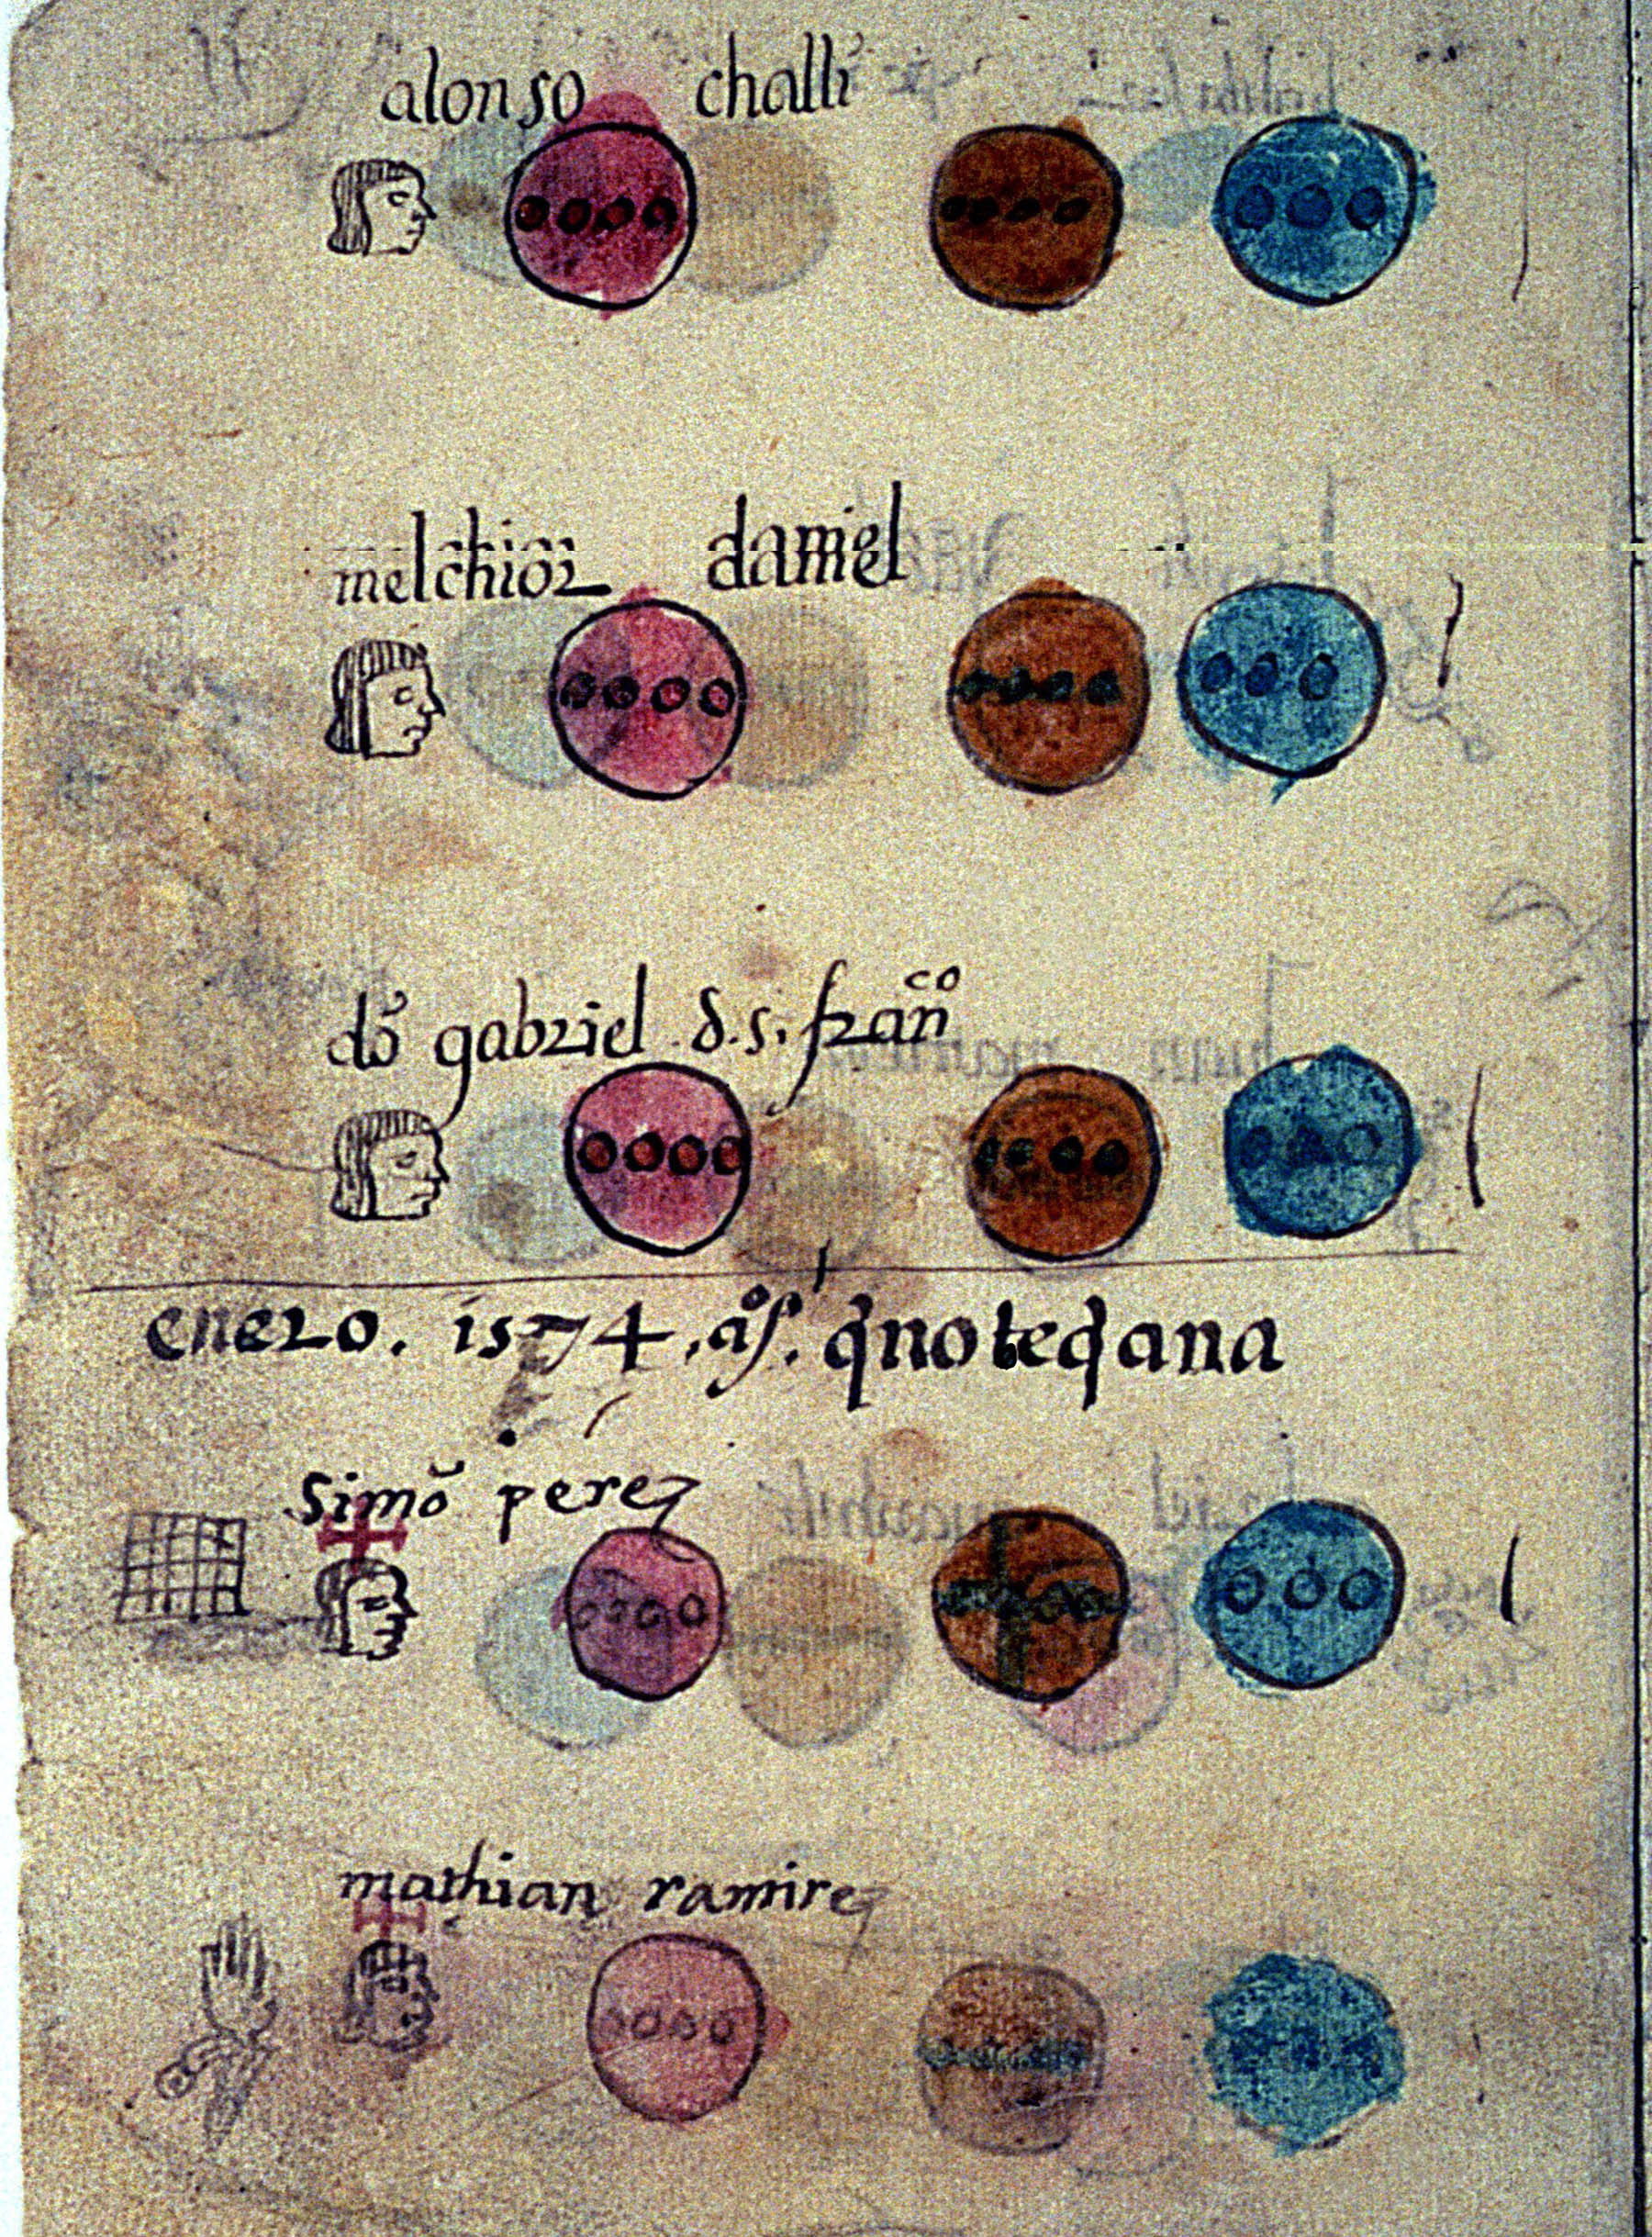 alonso challi
melchior daniel
dō gabriel d.s. frañco
enero. 1574, aos. qnoteqana
simō perez
mathian ramirez